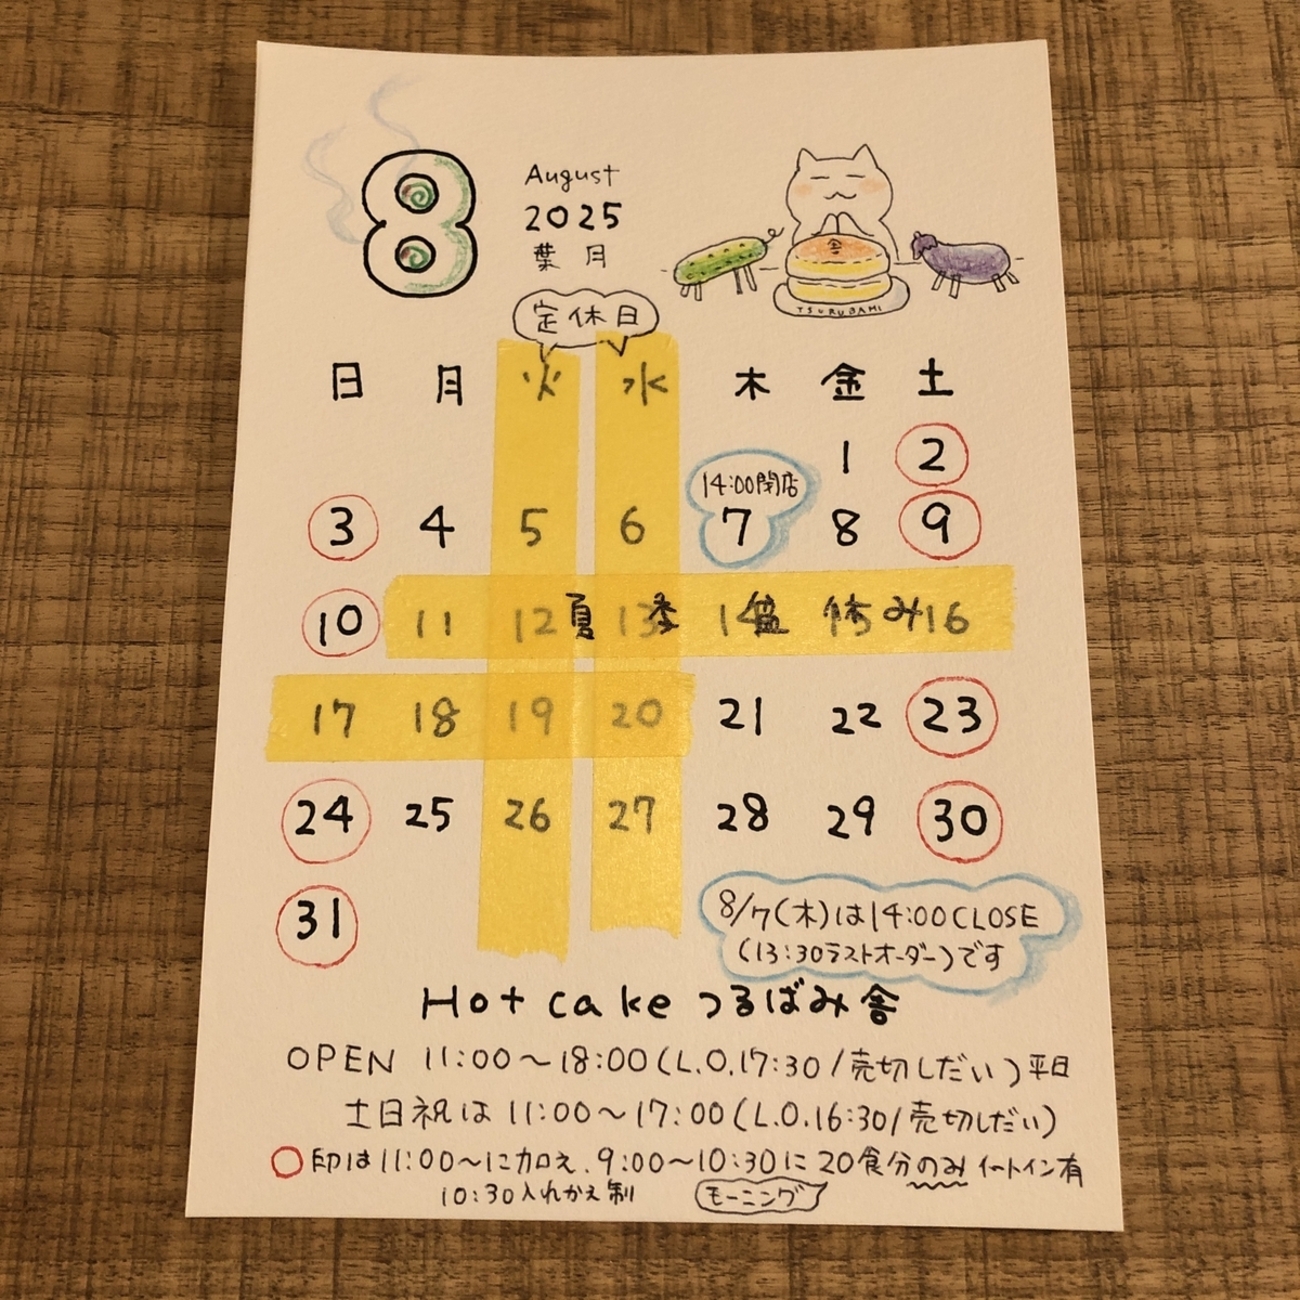 8
August
2025
葉月
舎
TSURUBAMI
定休日
日 月 火 水 木 金 土
1 2
14:00閉店
3 4 5 6 7 8 9
10 11 12 13 14 16
夏季盆休み
17 18 19 20 21 22 23
24 25 26 27 28 29 30
31
8/7(木)は14:00CLOSE
(13:30ラストオーダー)です
Hot cake つるばみ舎
OPEN 11:00〜18:00(L.O.17:30/売切しだい)平日
土日祝は11:00〜17:00(L.O.16:30/売切しだい)
○印は11:00〜に加え、9:00〜10:30に20食分のみイートイン有
10:30入れかえ制 モーニング